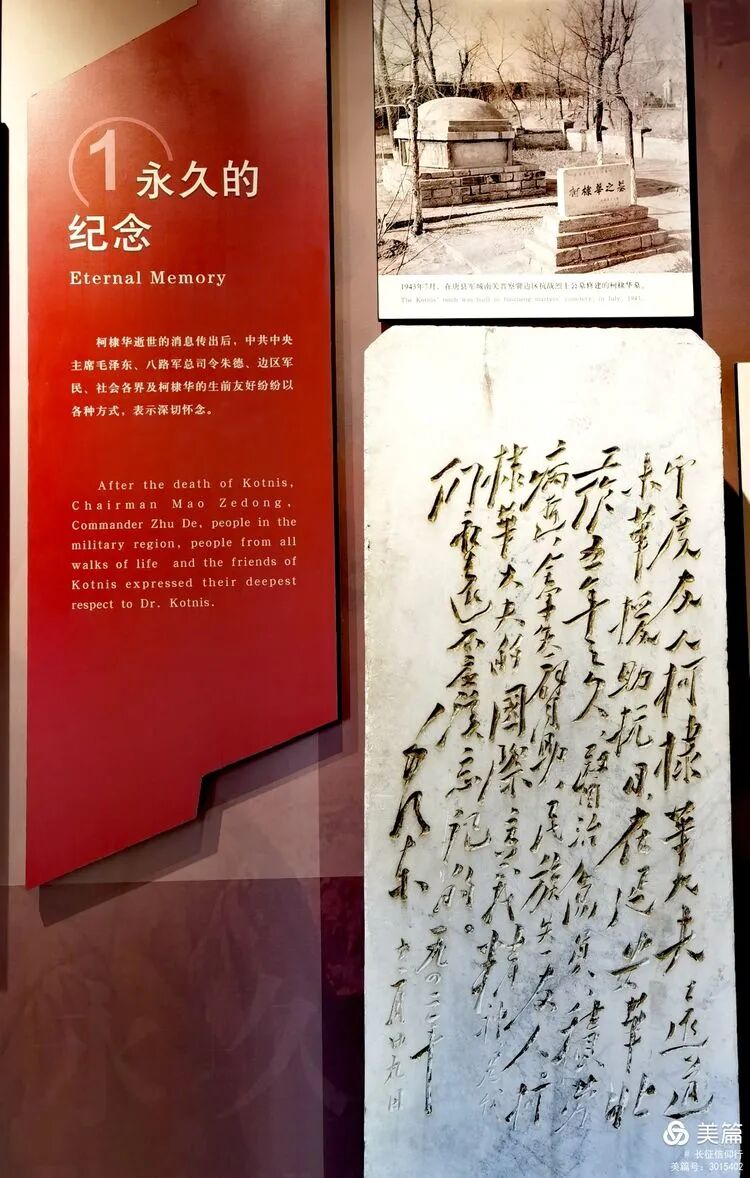 1 永久的
纪念
Eternal Memory
柯棣华逝世的消息传出后，中共中央
主席毛泽东、八路军总司令朱德、边区军
民、社会各界及柯棣华的生前友好纷纷以
各种方式，表示深切怀念。
After the death of Kotnis,
Chairman Mao Zedong,
Commander Zhu De, people in the
military region, people from all
walks of life and the friends of
Kotnis expressed their deepest
respect to Dr. Kotnis.
柯棣华之墓
1943年7月，在唐县军城南关晋察冀边区抗战烈士公墓修建的柯棣华墓。
The Kotnis' tomb was built in Juncheng martyrs' cemetery, in July, 1943.
印度友人柯棣華大夫遠道
来華援助抗日，在延安華北
工作五年之久，醫治傷員，積勞
病逝，全軍失一臂助，民族失一友人。柯
棣華大夫的國際主義精神，是我
們永遠不應該忘記的。
毛泽东
一九四二年
十二月廿九日
美篇
# 长征信仰行
美篇号：3015402